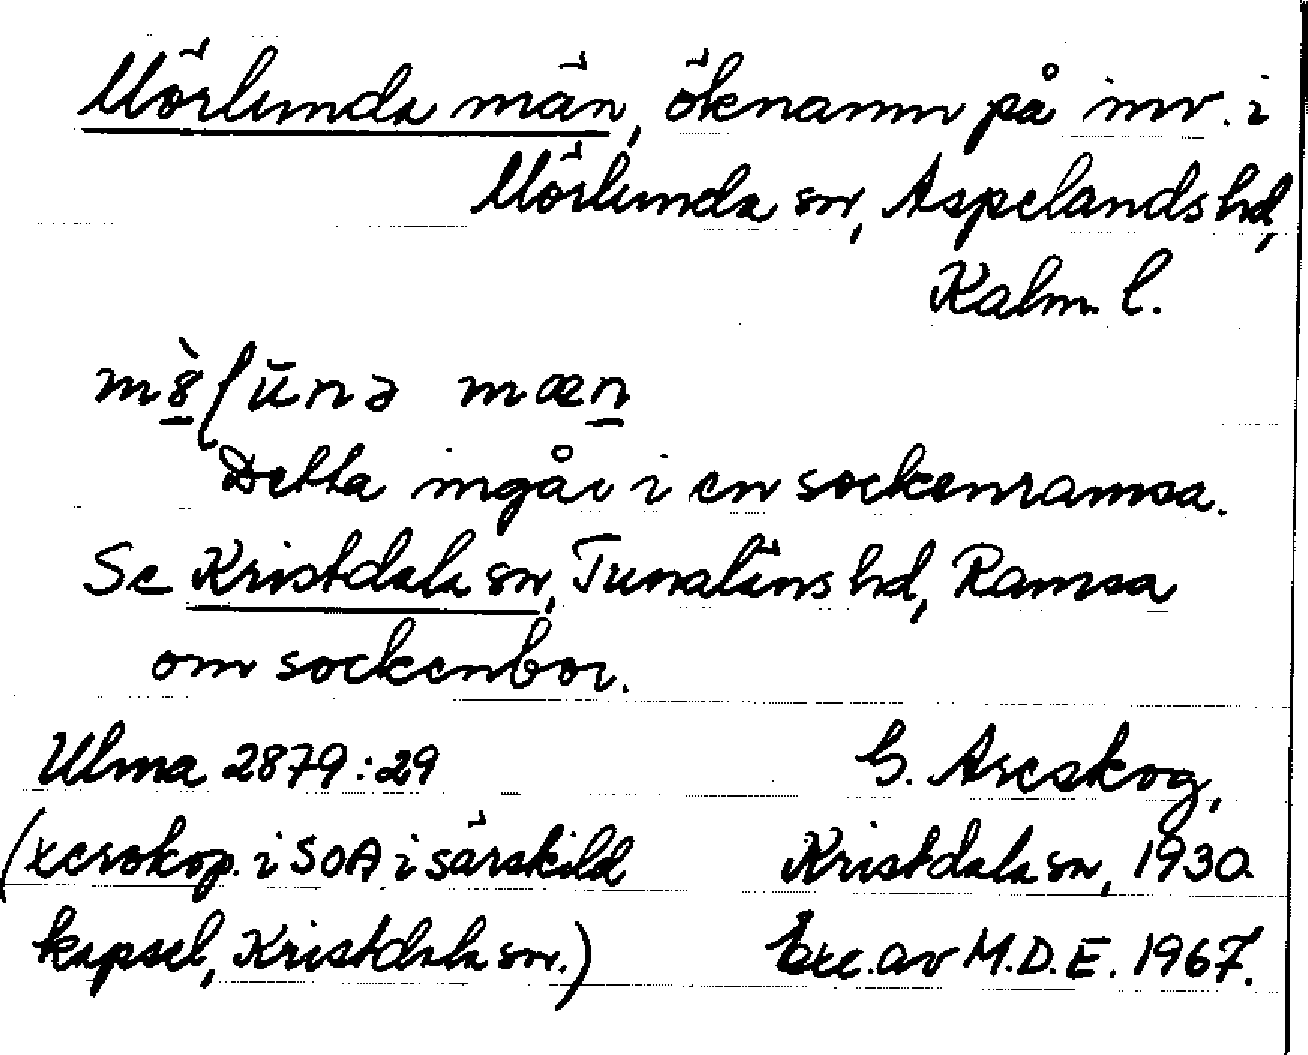 Mörlunda män, öknamn på inv. i
Mörlunda sn, Aspelands hd,
Kalm. l.
Detta ingår i en sockenramsa.
Se Kristdala sn, Tunaläns hd, Ramsa
om sockenbor.
Ulma 2879:29
(xerokop. i SOA i särskild
kapsel, Kristdala sn.)
G. Areskog,
Kristdala sn, 1930.
Exc. av M.D.E. 1967.